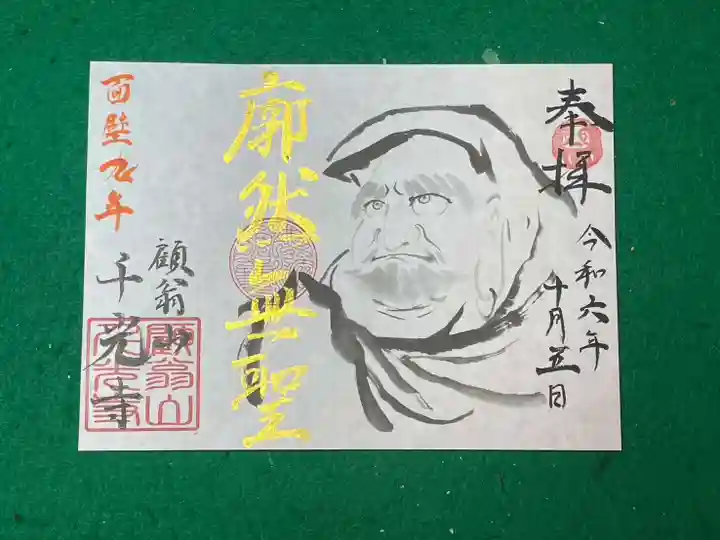 奉拝
令和六年
十月五日
廓然無聖
面壁九年
顧翁山
千光寺
顧翁山